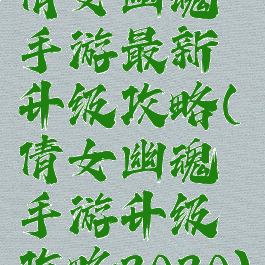 倩女幽魂
手游最新
升级攻略(
倩女幽魂
手游升级
攻略2020)